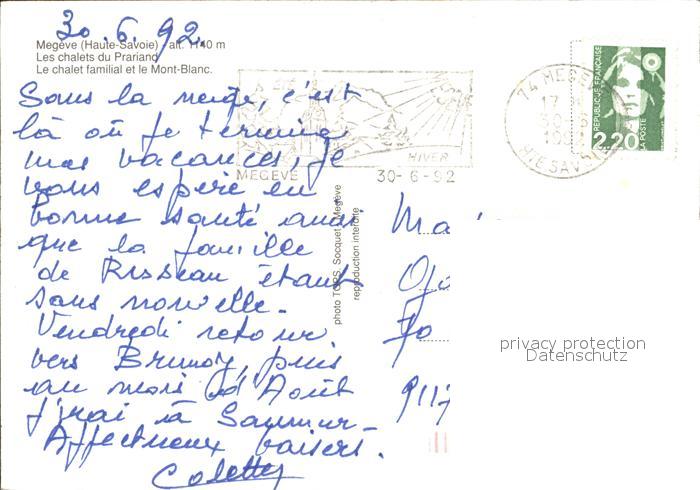 30.6.92.
Megève (Haute-Savoie) - alt. 1140 m
Les chalets du Prariand
Le chalet familial et le Mont-Blanc.
Sous la neige, c'est
là où je termine
mes vacances, je
vous espère en
bonne santé ainsi
que la famille
de Risseau étant
sans nouvelle.
Vendredi retour
vers Brunoy, puis
au mois d'Août
j'irai à Saumur.
Affectueux baisers.
Colette
HIVER
MEGEVE 30-6-92
74 MEGEVE
17 H
30-6
199
HTE SAVOIE
REPUBLIQUE FRANÇAISE
2,20
POSTE
photo TOPS, Socquet, Megève
reproduction interdite
Ma
91
privacy protection
Datenschutz